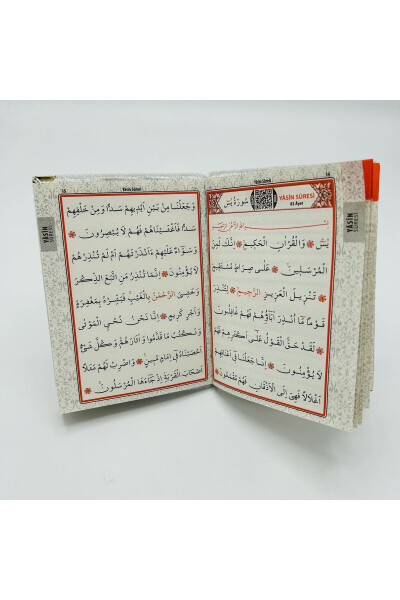 Yâsin Sûresi
14
YÂSİN SÛRESİ
83 Âyet
سُورَةُ يٰسٓ
يٰسٓ ۞ وَالْقُرْاٰنِ الْحَكٖيمِ ۞ اِنَّكَ لَمِنَ
الْمُرْسَلٖينَ ۞ عَلٰى صِرَاطٍ مُسْتَقٖيمٍ
۞ تَنْزٖيلَ الْعَزٖيزِ الرَّحٖيمِ ۞ لِتُنْذِرَ
قَوْمًا مَٓا اُنْذِرَ اٰبَٓاؤُهُمْ فَهُمْ غَافِلُونَ
۞ لَقَدْ حَقَّ الْقَوْلُ عَلٰٓى اَكْثَرِهِمْ فَهُمْ
لَا يُؤْمِنُونَ ۞ اِنَّا جَعَلْنَا فٖٓى اَعْنَاقِهِمْ
اَغْلَالًا فَهِىَ اِلَى الْاَذْقَانِ فَهُمْ مُقْمَحُونَ ۞
YÂSİN
SÛRESİ
Yâsin Sûresi
وَجَعَلْنَا مِنْ بَيْنِ اَيْدٖيهِمْ سَدًّا وَمِنْ خَلْفِهِمْ
سَدًّا فَاَغْشَيْنَاهُمْ فَهُمْ لَا يُبْصِرُونَ ۞
وَسَوَٓاءٌ عَلَيْهِمْ ءَاَنْذَرْتَهُمْ اَمْ لَمْ تُنْذِرْهُمْ
لَا يُؤْمِنُونَ ۞ اِنَّمَا تُنْذِرُ مَنِ اتَّبَعَ الذِّكْرَ
وَخَشِىَ الرَّحْمٰنَ بِالْغَيْبِ فَبَشِّرْهُ بِمَغْفِرَةٍ
وَاَجْرٍ كَرٖيمٍ ۞ اِنَّا نَحْنُ نُحْيِ الْمَوْتٰى
وَنَكْتُبُ مَا قَدَّمُوا وَاٰثَارَهُمْ وَكُلَّ شَىْءٍ
اَحْصَيْنَاهُ فٖٓى اِمَامٍ مُبٖينٍ ۞ وَاضْرِبْ لَهُمْ مَثَلًا
اَصْحَابَ الْقَرْيَةِ اِذْ جَٓاءَهَا الْمُرْسَلُونَ ۞